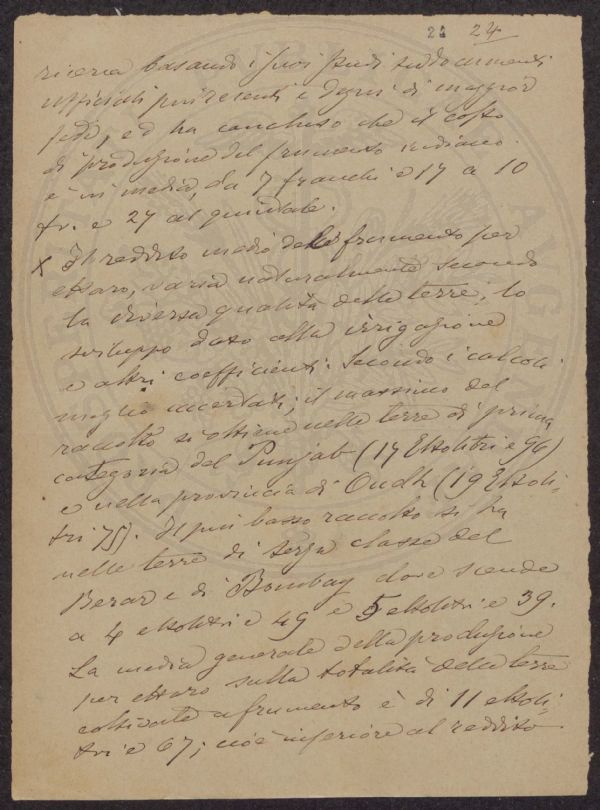 23 24
ricerca basando i suoi studi su documenti
ufficiali più recenti e degni di maggior
fede, ed ha concluso che il costo
di produzione del frumento indiano
è in media, da 7 franchi e 17 a 10
fr. e 27 al quintale.
x Il reddito medio del frumento per
ettaro, varia naturalmente secondo
la diversa qualità delle terre, lo
sviluppo dato alla irrigazione
e altri coefficienti. Secondo i calcoli
meglio accertati, il massimo del
raccolto si ottiene nelle terre di prima
categoria del Punjab (17 Ettolitri e 96)
e nella provincia di Oudh (19 Ettoli-
tri 75). Il più basso raccolto si ha
nelle terre di terza classe del
Berar e di Bombay dove scende
a 4 ettolitri e 49 e 5 ettolitri e 39.
La media generale della produzione
per ettaro sulla totalità delle terre
coltivate a frumento è di 11 ettoli-
tri e 67; cioè inferiore al reddito